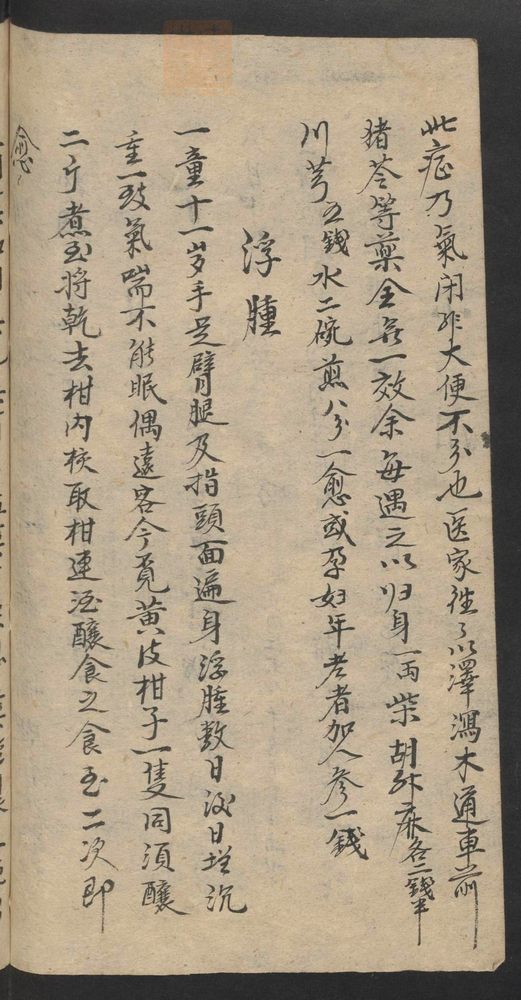 此症乃氣闭非大便不分也医家徃〻以澤瀉木通車前
猪苓等藥全無一效余每遇之以归身一両柴胡升麻各二錢半
川芎五錢水二碗煎八分一愈或孕妇年老者加人參一錢
浮腫
一童十一岁手足臂腿及指頭面遍身浮腫数日後日增沉
重一致氣喘不能眠偶遠客令覓黃皮柑子一隻同須釀
二斤煮至將乾去柑内核取柑連酒釀食之食至二次即
愈